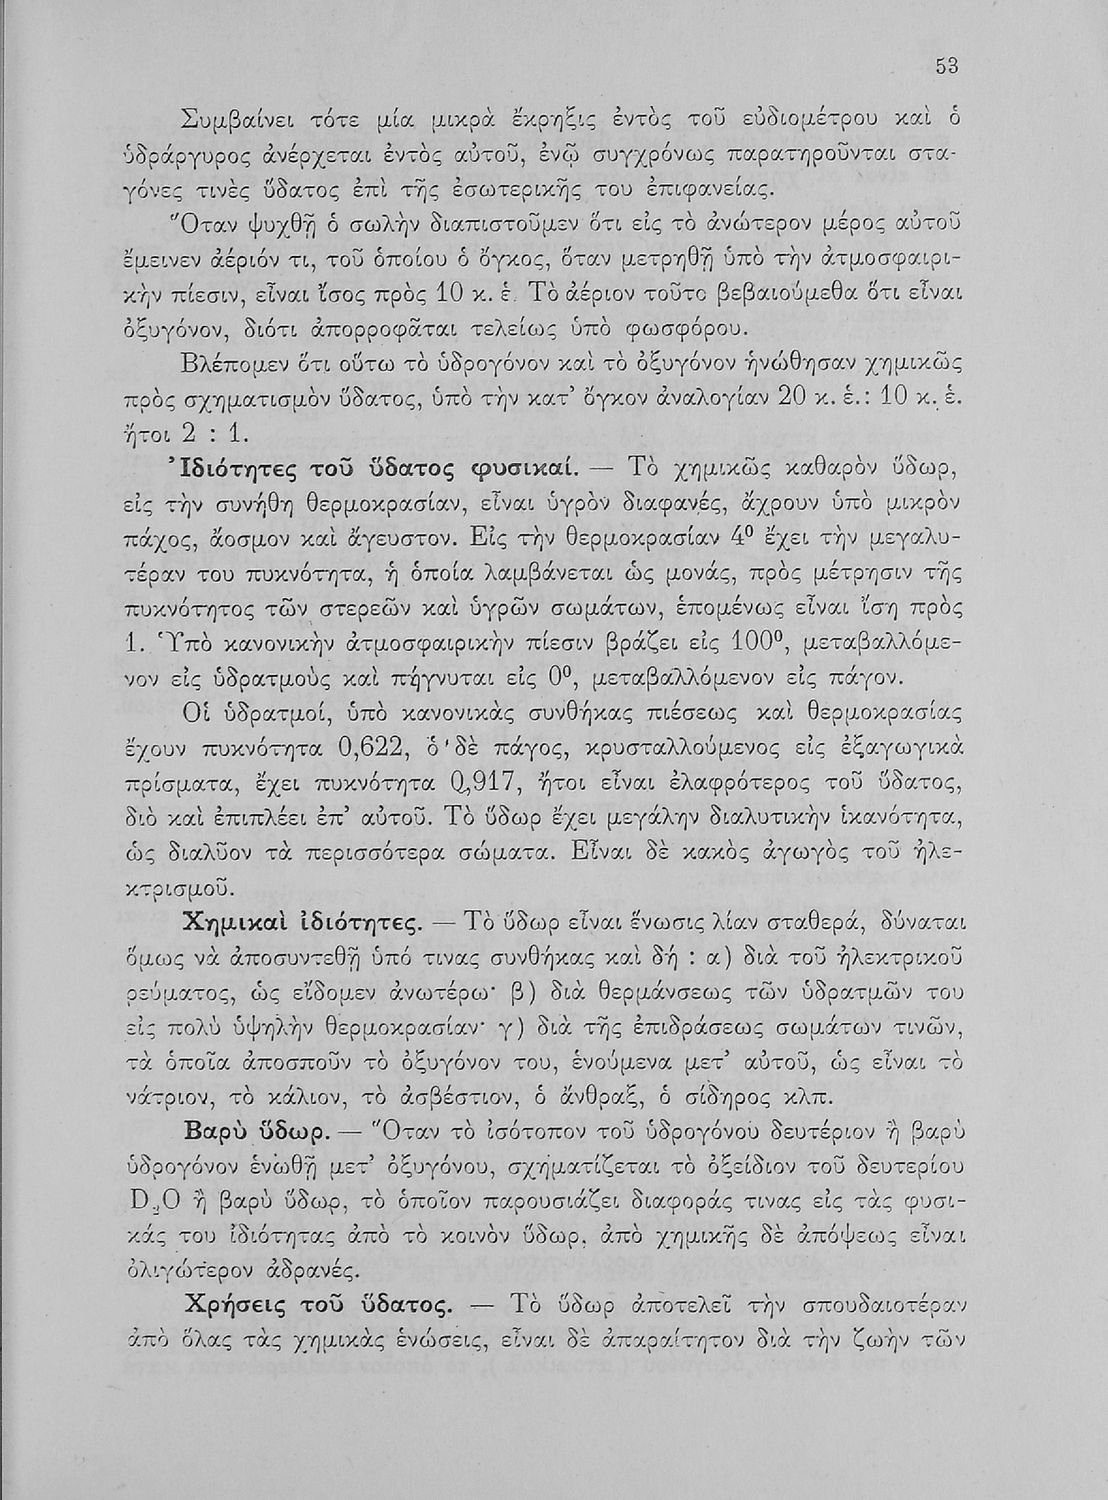 53
Συμβαίνει τότε μία μικρὰ ἔκρηξις ἐντὸς τοῦ εὐδιομέτρου καὶ ὁ
ὑδράργυρος ἀνέρχεται ἐντὸς αὐτοῦ, ἐνῷ συγχρόνως παρατηροῦνται στα-
γόνες τινὲς ὕδατος ἐπὶ τῆς ἐσωτερικῆς του ἐπιφανείας.
Ὅταν ψυχθῇ ὁ σωλὴν διαπιστοῦμεν ὅτι εἰς τὸ ἀνώτερον μέρος αὐτοῦ
ἔμεινεν ἀέριόν τι, τοῦ ὁποίου ὁ ὄγκος, ὅταν μετρηθῇ ὑπὸ τὴν ἀτμοσφαιρι-
κὴν πίεσιν, εἶναι ἴσος πρὸς 10 κ. ἑ. Τὸ ἀέριον τοῦτο βεβαιούμεθα ὅτι εἶναι
ὀξυγόνον, διότι ἀπορροφᾶται τελείως ὑπὸ φωσφόρου.
Βλέπομεν ὅτι οὕτω τὸ ὑδρογόνον καὶ τὸ ὀξυγόνον ἡνώθησαν χημικῶς
πρὸς σχηματισμὸν ὕδατος, ὑπὸ τὴν κατ’ ὄγκον ἀναλογίαν 20 κ. ἑ.: 10 κ. ἑ.
ἤτοι 2 : 1.
Ἰδιότητες τοῦ ὕδατος φυσικαί. — Τὸ χημικῶς καθαρὸν ὕδωρ,
εἰς τὴν συνήθη θερμοκρασίαν, εἶναι ὑγρὸν διαφανές, ἄχρουν ὑπὸ μικρὸν
πάχος, ἄοσμον καὶ ἄγευστον. Εἰς τὴν θερμοκρασίαν 4⁰ ἔχει τὴν μεγαλυ-
τέραν του πυκνότητα, ἡ ὁποία λαμβάνεται ὡς μονάς, πρὸς μέτρησιν τῆς
πυκνότητος τῶν στερεῶν καὶ ὑγρῶν σωμάτων, ἑπομένως εἶναι ἴση πρὸς
1. Ὑπὸ κανονικὴν ἀτμοσφαιρικὴν πίεσιν βράζει εἰς 100⁰, μεταβαλλόμε-
νον εἰς ὑδρατμοὺς καὶ πήγνυται εἰς 0⁰, μεταβαλλόμενον εἰς πάγον.
Οἱ ὑδρατμοί, ὑπὸ κανονικὰς συνθήκας πιέσεως καὶ θερμοκρασίας
ἔχουν πυκνότητα 0,622, ὁ δὲ πάγος, κρυσταλλούμενος εἰς ἑξαγωγικὰ
πρίσματα, ἔχει πυκνότητα 0,917, ἤτοι εἶναι ἐλαφρότερος τοῦ ὕδατος,
διὸ καὶ ἐπιπλέει ἐπ’ αὐτοῦ. Τὸ ὕδωρ ἔχει μεγάλην διαλυτικὴν ἱκανότητα,
ὡς διαλῦον τὰ περισσότερα σώματα. Εἶναι δὲ κακὸς ἀγωγὸς τοῦ ἠλε-
κτρισμοῦ.
Χημικαὶ ἰδιότητες. — Τὸ ὕδωρ εἶναι ἕνωσις λίαν σταθερά, δύναται
ὅμως νὰ ἀποσυντεθῇ ὑπό τινας συνθήκας καὶ δή : α) διὰ τοῦ ἠλεκτρικοῦ
ρεύματος, ὡς εἴδομεν ἀνωτέρω· β) διὰ θερμάνσεως τῶν ὑδρατμῶν του
εἰς πολὺ ὑψηλὴν θερμοκρασίαν· γ) διὰ τῆς ἐπιδράσεως σωμάτων τινῶν,
τὰ ὁποῖα ἀποσποῦν τὸ ὀξυγόνον του, ἑνούμενα μετ’ αὐτοῦ, ὡς εἶναι τὸ
νάτριον, τὸ κάλιον, τὸ ἀσβέστιον, ὁ ἄνθραξ, ὁ σίδηρος κλπ.
Βαρὺ ὕδωρ. — Ὅταν τὸ ἰσότοπον τοῦ ὑδρογόνου δευτέριον ἢ βαρὺ
ὑδρογόνον ἑνωθῇ μετ’ ὀξυγόνου, σχηματίζεται τὸ ὀξείδιον τοῦ δευτερίου
D₂O ἢ βαρὺ ὕδωρ, τὸ ὁποῖον παρουσιάζει διαφοράς τινας εἰς τὰς φυσι-
κάς του ἰδιότητας ἀπὸ τὸ κοινὸν ὕδωρ, ἀπὸ χημικῆς δὲ ἀπόψεως εἶναι
ὀλιγώτερον ἀδρανές.
Χρήσεις τοῦ ὕδατος. — Τὸ ὕδωρ ἀποτελεῖ τὴν σπουδαιοτέραν
ἀπὸ ὅλας τὰς χημικὰς ἑνώσεις, εἶναι δὲ ἀπαραίτητον διὰ τὴν ζωὴν τῶν